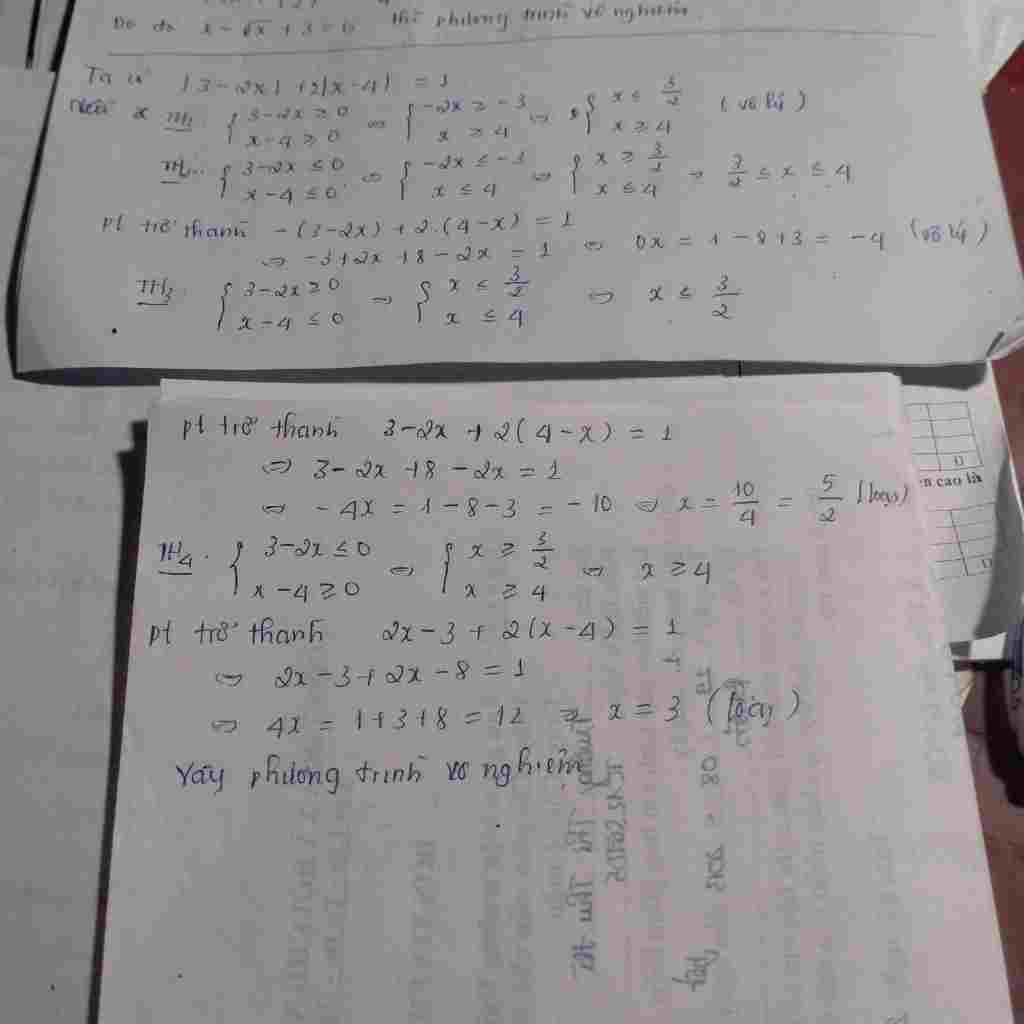 Do đó x - √x + 3 = 0 thì phương trình vô nghiệm.
Ta có |3-2x| + 2|x-4| = 1
Nếu x TH1: { 3-2x ≥ 0 x-4 ≥ 0 ⇔ { -2x ≥ -3 x ≥ 4 ⇔ { x ≤ 3/2 x ≥ 4 (vô lý)
TH2: { 3-2x ≤ 0 x-4 ≤ 0 ⇔ { -2x ≤ -3 x ≤ 4 ⇔ { x ≥ 3/2 x ≤ 4 ⇒ 3/2 ≤ x ≤ 4
pt trở thành -(3-2x) + 2.(4-x) = 1
⇔ -3+2x+8-2x = 1 ⇔ 0x = 1-8+3 = -4 (vô lý)
TH3: { 3-2x ≥ 0 x-4 ≤ 0 ⇔ { x ≤ 3/2 x ≤ 4 ⇔ x ≤ 3/2
pt trở thành 3-2x + 2(4-x) = 1
⇔ 3-2x+8-2x = 1
⇔ -4x = 1-8-3 = -10 ⇔ x = 10/4 = 5/2 (loại)
TH4. { 3-2x ≤ 0 x-4 ≥ 0 ⇔ { x ≥ 3/2 x ≥ 4 ⇔ x ≥ 4
pt trở thành 2x-3 + 2(x-4) = 1
⇔ 2x-3+2x-8 = 1
⇔ 4x = 1+3+8 = 12 ⇒ x = 3 (loại)
Vậy phương trình vô nghiệm
cao là